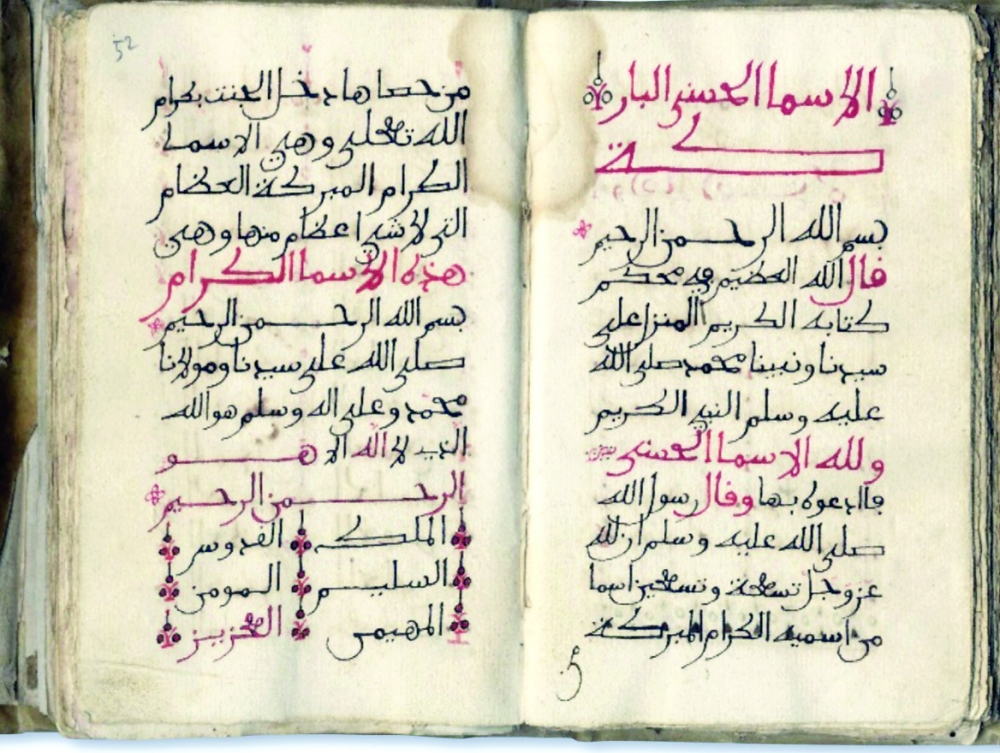 الاسما الحسنى البار
كة
بسم الله الرحمن الرحيم
قال الله العظيم في محكم
كتابه الكريم المنزل على
سيدنا ونبينا محمد صلى الله
عليه وسلم النبي الكريم
ولله الاسما الحسنى
فادعوه بها وقال رسول الله
صلى الله عليه وسلم ان لله
عز وجل تسعة وتسعين اسما
من اسميه الكرام المبركة
52
من حصاها دخل الجنت بكرام
الله تعلى وهي الاسما
الكرام المبركة العظام
التي لا شي اعظام منها وهي
هذه الاسما الكرام
بسم الله الرحمن الرحيم
صلى الله على سيدنا ومولانا
محمد وعلى اله وسلم هو الله
الذي لا اله الا هو
الرحمن الرحيم
الملك القدوس
السليم المومن
المهيمن العزيز